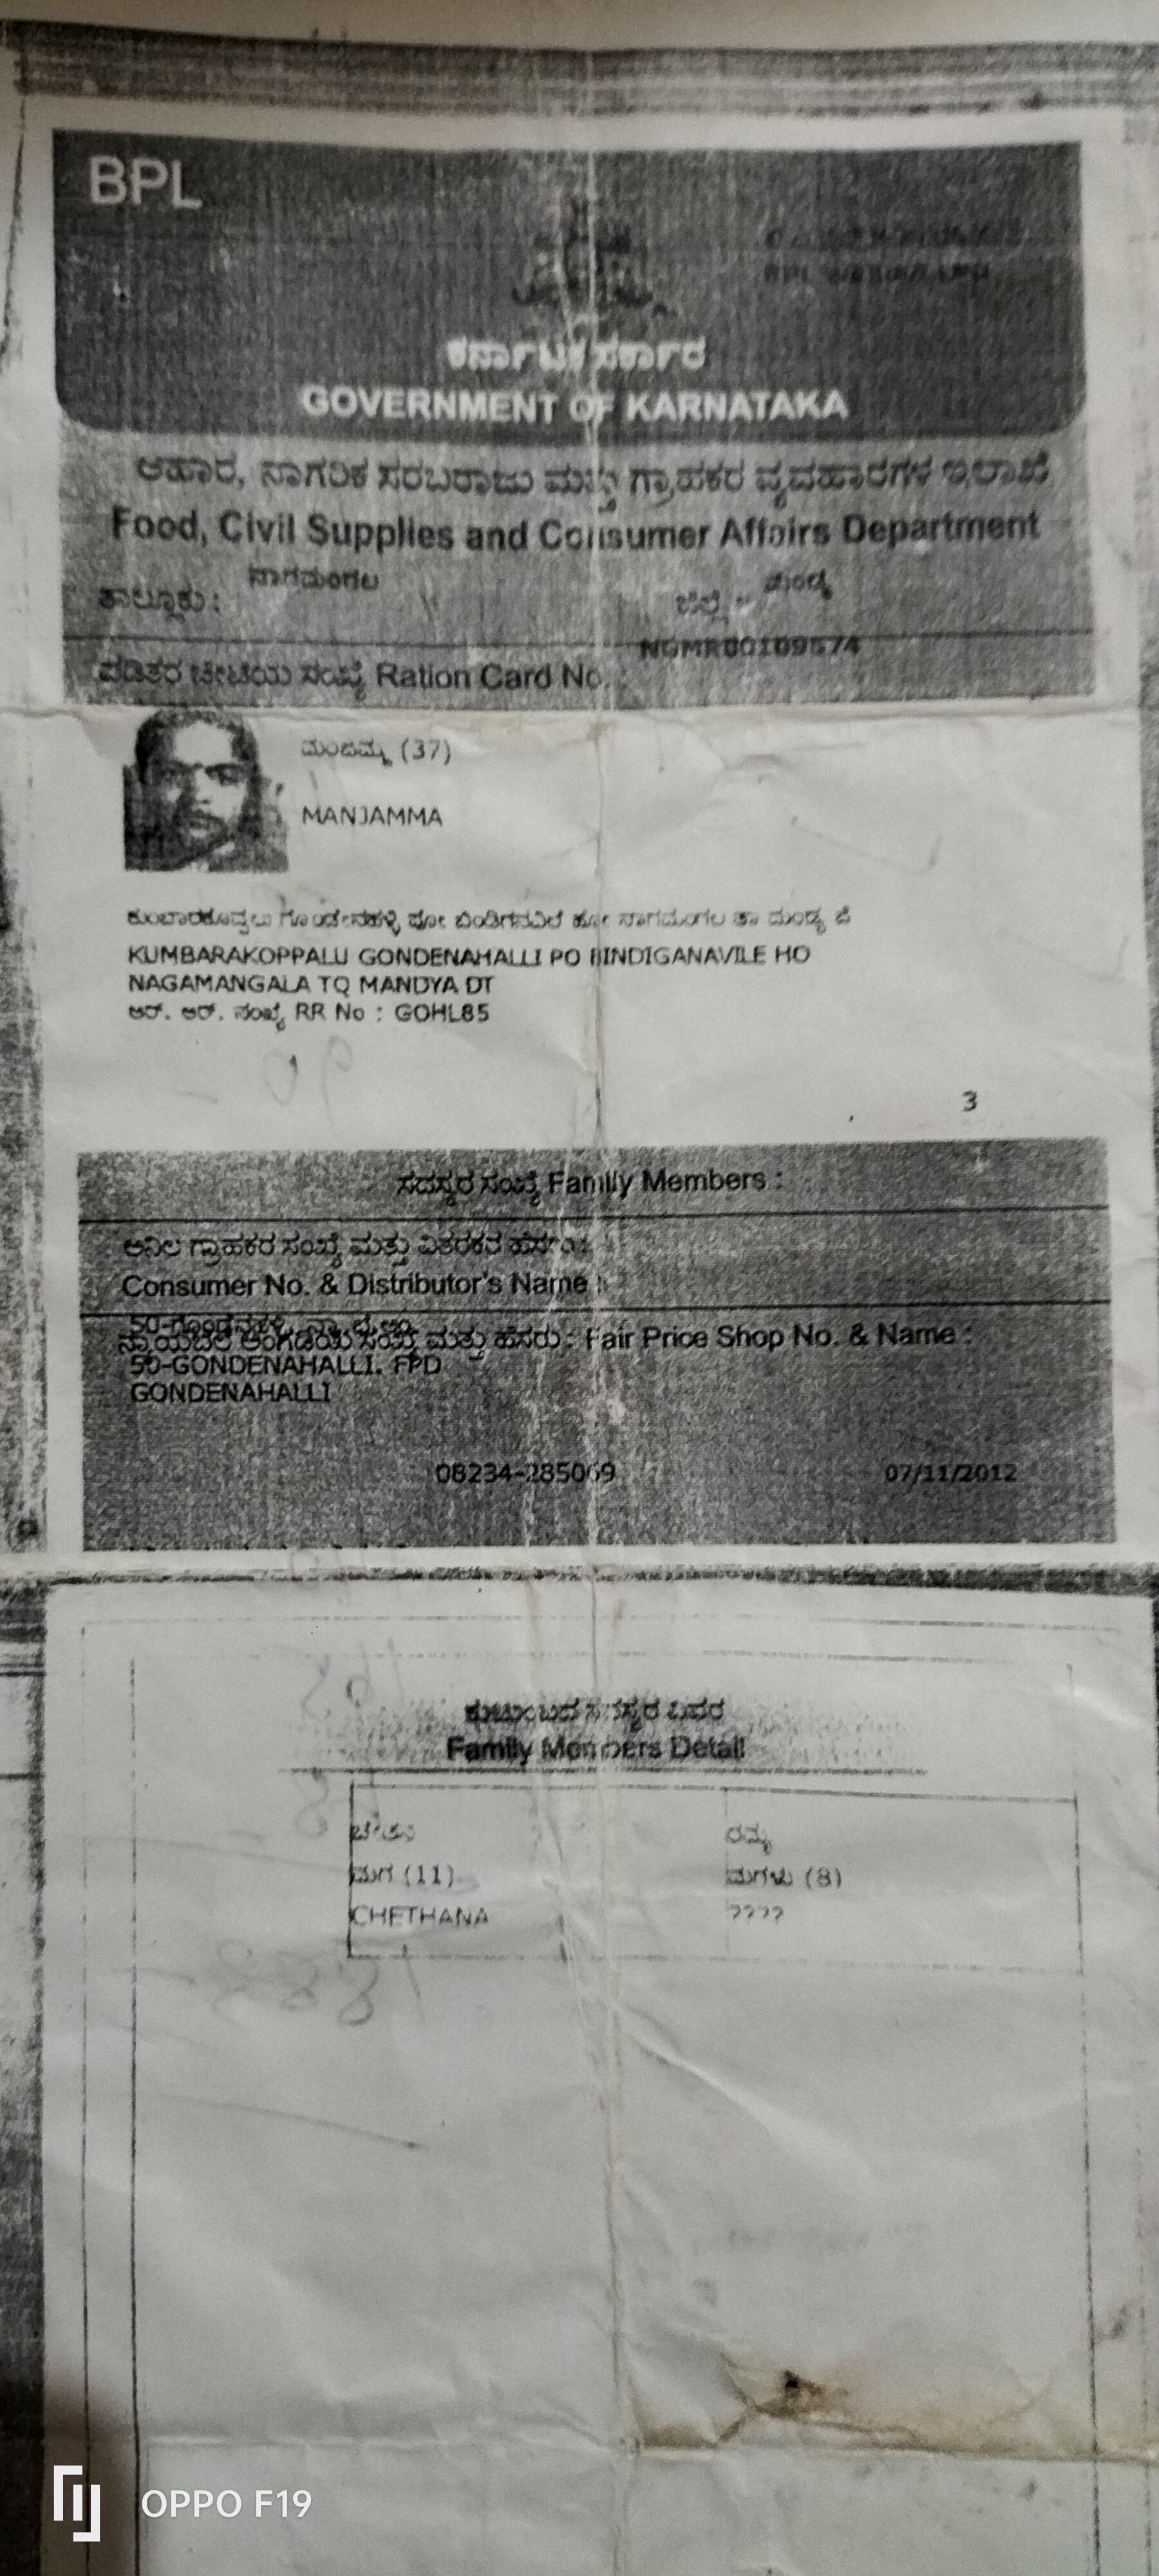 BPL
ಕರ್ನಾಟಕ ಸರ್ಕಾರ
GOVERNMENT OF KARNATAKA
ಆಹಾರ, ನಾಗರಿಕ ಸರಬರಾಜು ಮತ್ತು ಗ್ರಾಹಕರ ವ್ಯವಹಾರಗಳ ಇಲಾಖೆ
Food, Civil Supplies and Consumer Affairs Department
ನಾಗಮಂಗಲ ಮಂಡ್ಯ
ತಾಲ್ಲೂಕು : ಜಿಲ್ಲೆ :
ಪಡಿತರ ಚೀಟಿಯ ಸಂಖ್ಯೆ Ration Card No. :
ಮಂಜಮ್ಮ (37)
MANJAMMA
ನಾಗಮಂಗಲ ತಾ ಮಂಡ್ಯ ಜಿ
KUMBARAKOPPALU GONDENAHALLI PO BINDIGANAVILE HO
NAGAMANGALA TQ MANDYA DT
ಆರ್. ಆರ್. ಸಂಖ್ಯೆ RR No : GOHL85
3
ಸದಸ್ಯರ ಸಂಖ್ಯೆ Family Members :
ಅನಿಲ ಗ್ರಾಹಕರ ಸಂಖ್ಯೆ ಮತ್ತು ವಿತರಕರ ಹೆಸರು :
Consumer No. & Distributor's Name :
ನ್ಯಾಯಬೆಲೆ ಅಂಗಡಿಯ ಸಂಖ್ಯೆ ಮತ್ತು ಹೆಸರು : Fair Price Shop No. & Name :
50-GONDENAHALLI. FPD
GONDENAHALLI
08234-285069 07/11/2012
ಕುಟುಂಬದ ಸದಸ್ಯರ ವಿವರ
Family Members Detail
ರಮ್ಯ
ಮಗ (11) ಮಗಳು (8)
CHETHANA ????
OPPO F19